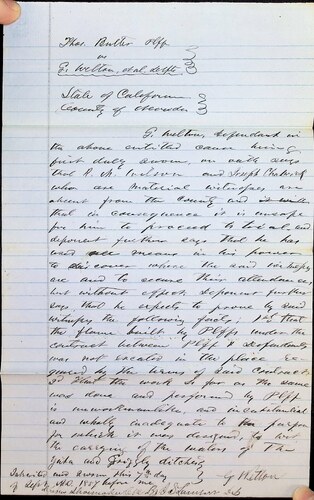 Thos. Butler Plff
vs
G. Welton, et al defts
State of California
County of
G. Welton, defendant in
the above entitled cause being
first duly sworn, on oath says
that R. M. Wilson and Joseph
who are material witnesses are
absent from the County and
that in consequence it is unsafe
for him to proceed to trial, and
deponent further says that he has
used all means in his power
to discover where the said witnesses
are and to secure their attendance
but without effect, deponent further
says that he expects to prove by said
witnesses the following facts; 1st that
the flume built by Plffs under the
contract between Plff & defendants
was not located in the place re-
quired by the terms of said Contract
2d that the work so far as the same
was done and performed by Plff
is unworkmanlike, and insubstantial
and wholly inadequate to the purpose
for which it was designed, to wit
the carrying of the waters of the
and Grizzly ditches
G Welton
Subscribed and sworn this 7th day
of Sept. AD. 1857 before me